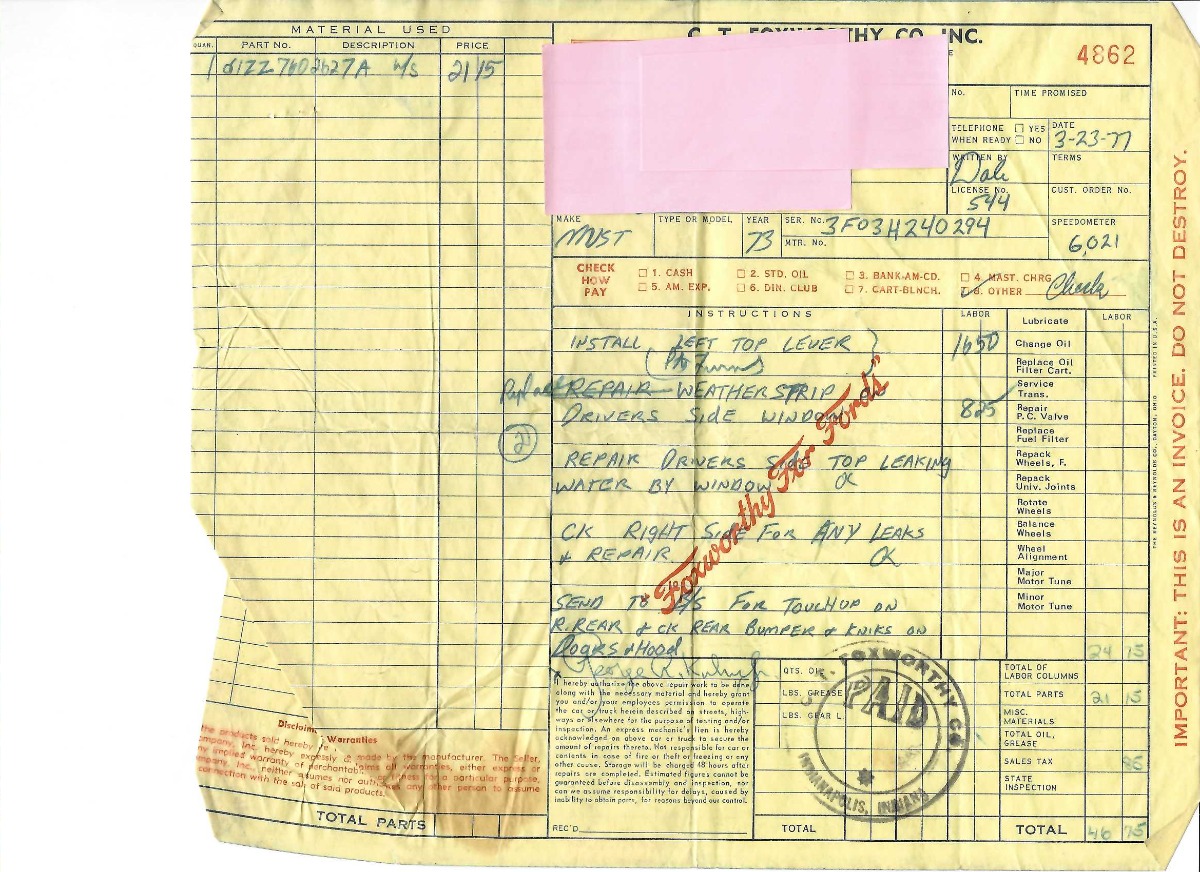 MATERIAL USED
QUAN. PART No. DESCRIPTION PRICE
1 W/S 21 15
C. T. FOXWORTHY CO. INC.
4862
No. TIME PROMISED
TELEPHONE WHEN READY ☐ YES ☐ NO
DATE 3-23-77
WRITTEN BY Dale
TERMS
LICENSE No. 544
CUST. ORDER No.
MAKE MUST
TYPE OR MODEL
YEAR 73
SER. No. 3F03H240294
MTR. No.
SPEEDOMETER 6,021
CHECK HOW PAY
☐ 1. CASH ☐ 2. STD. OIL ☐ 3. BANK-AM-CD. ☐ 4. MAST. CHRG
☐ 5. AM. EXP. ☐ 6. DIN. CLUB ☐ 7. CART-BLNCH. ☑ 8. OTHER Check
INSTRUCTIONS LABOR LABOR
INSTALL LEFT TOP LEVER 16 50
REPAIR WEATHERSTRIP on
DRIVERS SIDE WINDOW 8 25
21
REPAIR DRIVERS SIDE TOP LEAKING
WATER BY WINDOW OK
CK RIGHT SIDE FOR ANY LEAKS
& REPAIR OK
SEND TO B/S FOR TOUCHUP ON
R. REAR & CK REAR BUMPER & KNIKS ON
Doors & Hood
"Foxworthy For Fords"
Lubricate
Change Oil
Replace Oil Filter Cart.
Service Trans.
Repair P.C. Valve
Replace Fuel Filter
Repack Wheels, F.
Repack Univ. Joints
Rotate Wheels
Balance Wheels
Wheel Alignment
Major Motor Tune
Minor Motor Tune
I hereby authorize the above repair work to be done
along with the necessary material and hereby grant
you and/or your employees permission to operate
the car or truck herein described on streets, high-
ways or elsewhere for the purpose of testing and/or
inspection. An express mechanic's lien is hereby
acknowledged on above car or truck to secure the
amount of repairs thereto. Not responsible for car or
contents in case of fire or theft or freezing or any
other cause. Storage will be charged 48 hours after
repairs are completed. Estimated figures cannot be
guaranteed before disassembly and inspection, nor
can we assume responsibility for delays, caused by
inability to obtain parts, for reasons beyond our control.
REC'D
QTS. OIL
LBS. GREASE
LBS. GEAR L.
TOTAL
FOXWORTHY CO
PAID
INDIANAPOLIS, INDIANA
TOTAL OF LABOR COLUMNS 24 75
TOTAL PARTS 21 15
MISC. MATERIALS
TOTAL OIL, GREASE
SALES TAX 85
STATE INSPECTION
TOTAL 46 75
Warranties
the products sold hereby
made by the manufacturer. The Seller,
Inc. hereby expressly
warranties, either express or
implied warranty of merchantab
fitness for a particular purpose,
Inc., neither assumes nor
any other person to assume
connection with the sale of said products.
TOTAL PARTS
IMPORTANT: THIS IS AN INVOICE. DO NOT DESTROY.
THE REYNOLDS & REYNOLDS CO., DAYTON, OHIO PRINTED IN U.S.A.